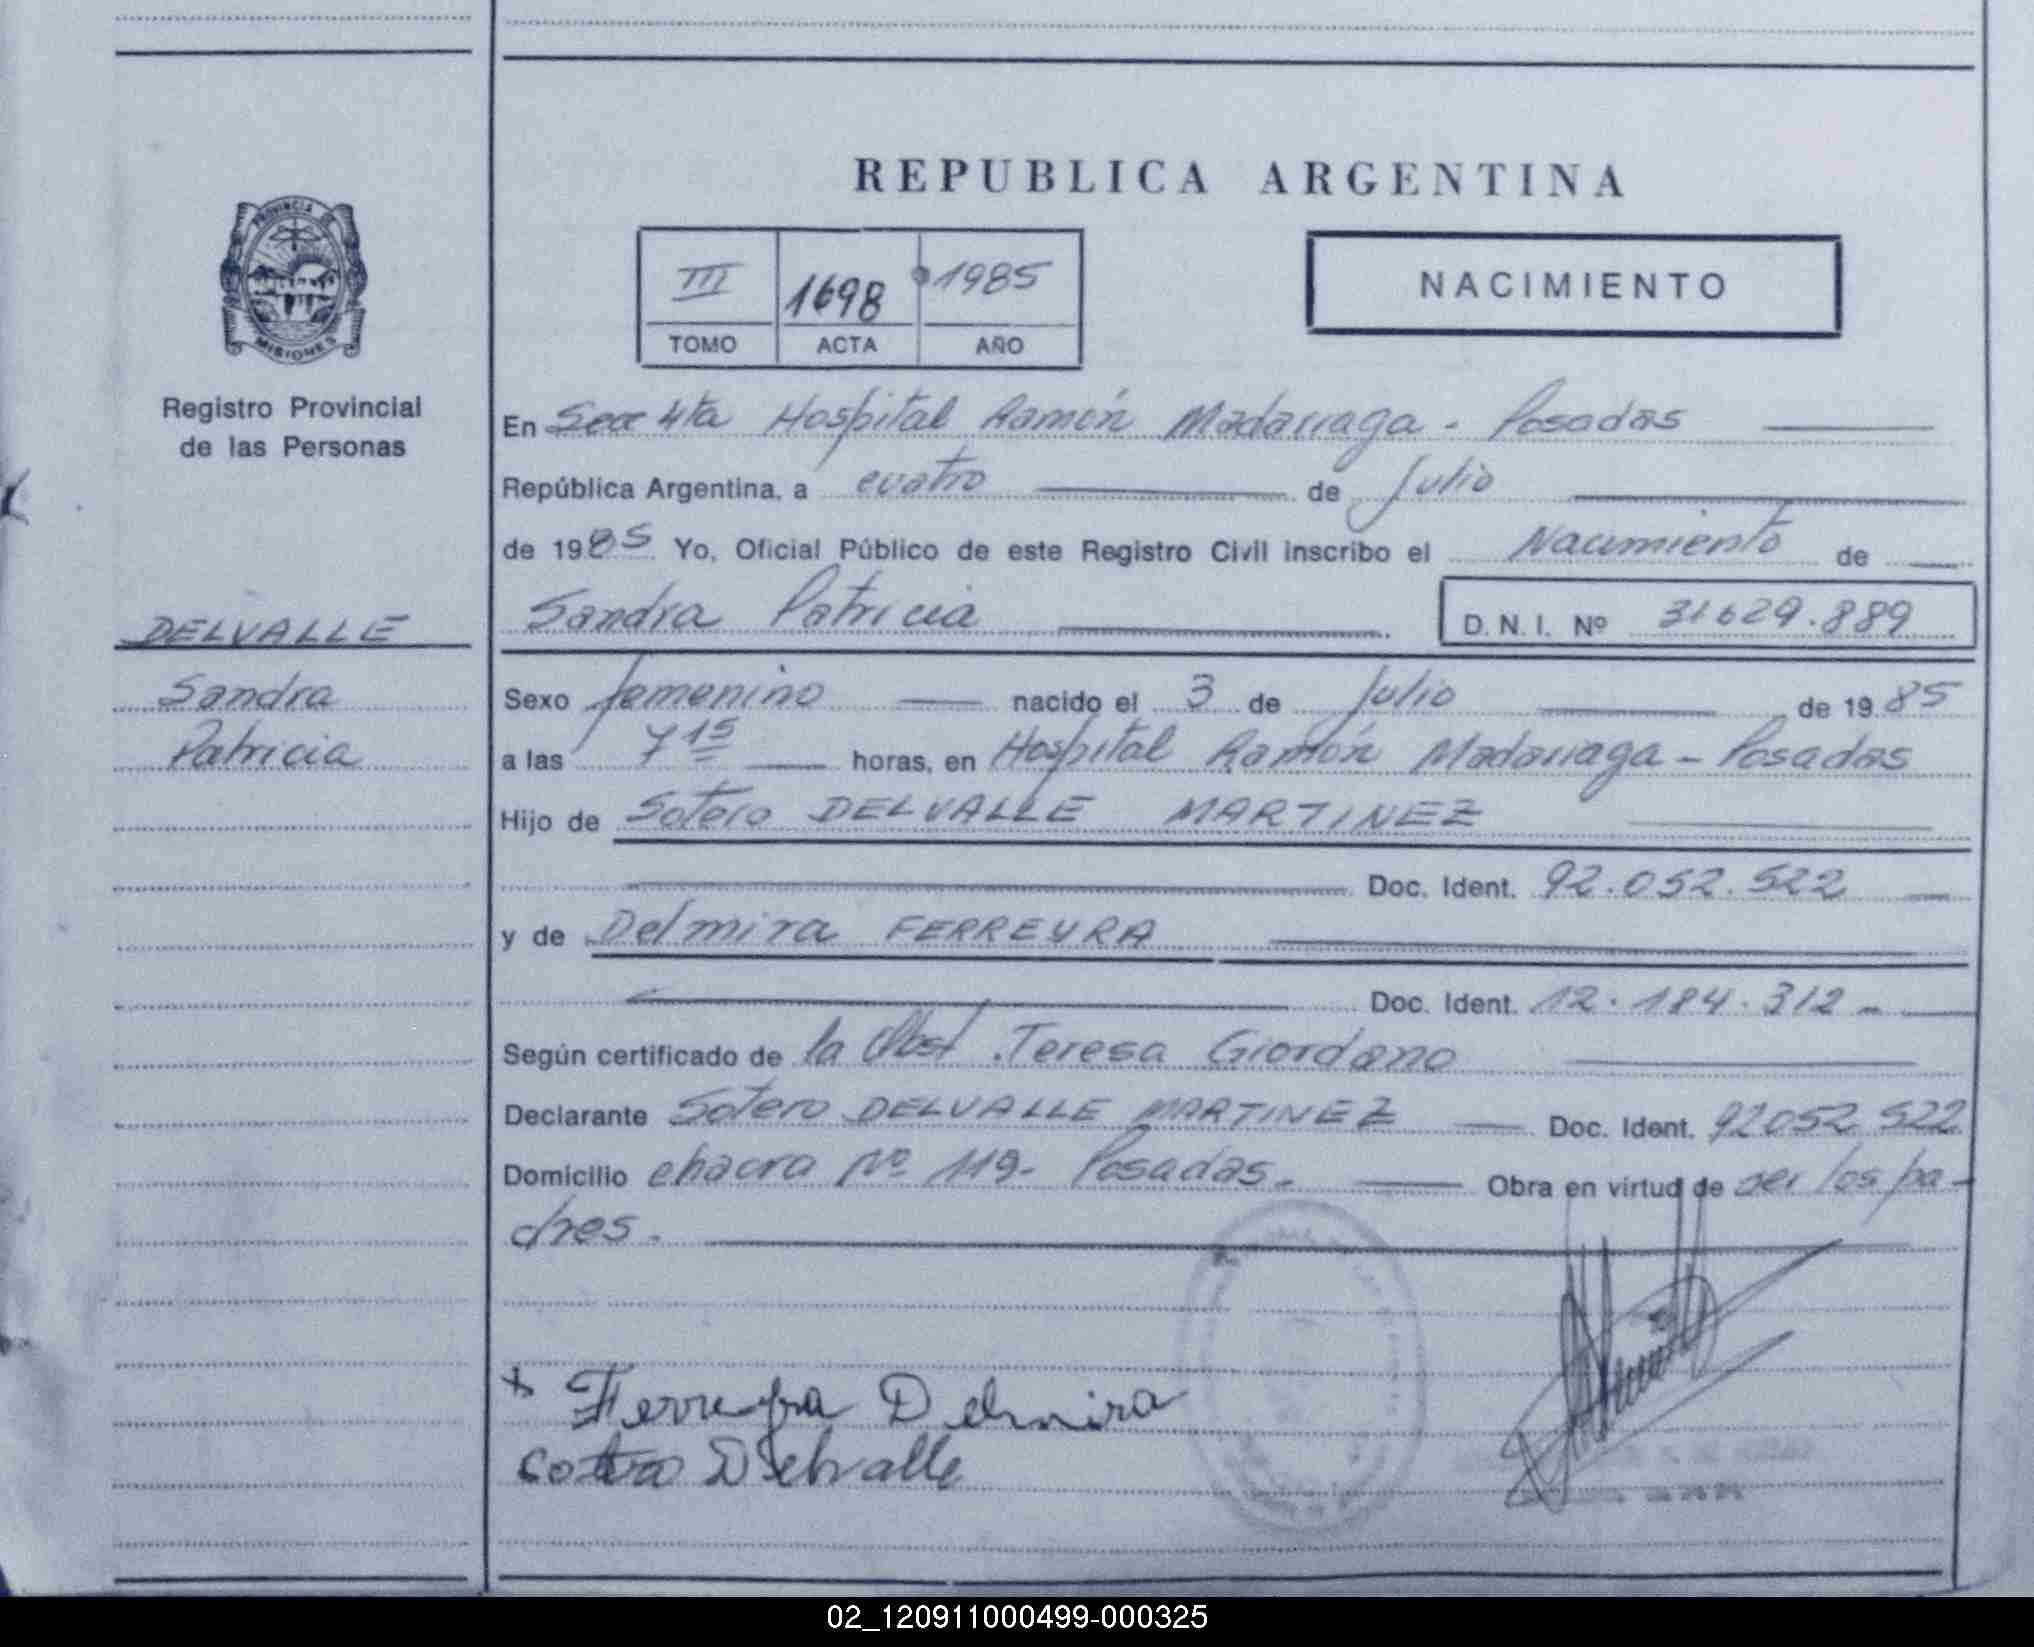 REPUBLICA ARGENTINA
PROVINCIA DE
MISIONES
Registro Provincial
de las Personas
III 1698 1985
TOMO ACTA AÑO
NACIMIENTO
En Secc 4ta Hospital Ramón Madariaga - Posadas
República Argentina, a cuatro de Julio
de 1985 Yo, Oficial Público de este Registro Civil inscribo el Nacimiento de
Sandra Patricia D. N. I. Nº 31629.889
DELVALLE
Sandra
Patricia
Sexo femenino nacido el 3 de Julio de 1985
a las 7 15 horas, en Hospital Ramón Madariaga - Posadas
Hijo de Sotero DELVALLE MARTINEZ
Doc. Ident. 92.052.522
y de Delmira FERREYRA
Doc. Ident. 12.184.312 -
Según certificado de la Obst. Teresa Giordano
Declarante Sotero DELVALLE MARTINEZ Doc. Ident. 92052522
Domicilio chacra Nº 119- Posadas. Obra en virtud de ser los pa-
dres.
Ferreyra Delmira
Delvalle
02_120911000499-000325